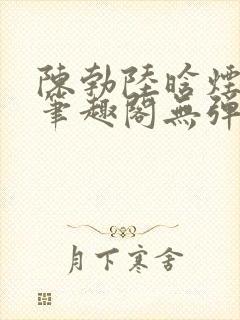 陳勃陸晗煙
筆趣閣無彈
月下寒舍